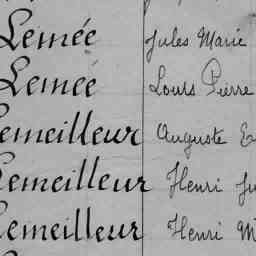 Lemée Jules Marie
Lemée Louis Pierre
Lemeilleur Auguste
Lemeilleur Henri
Lemeilleur Henri